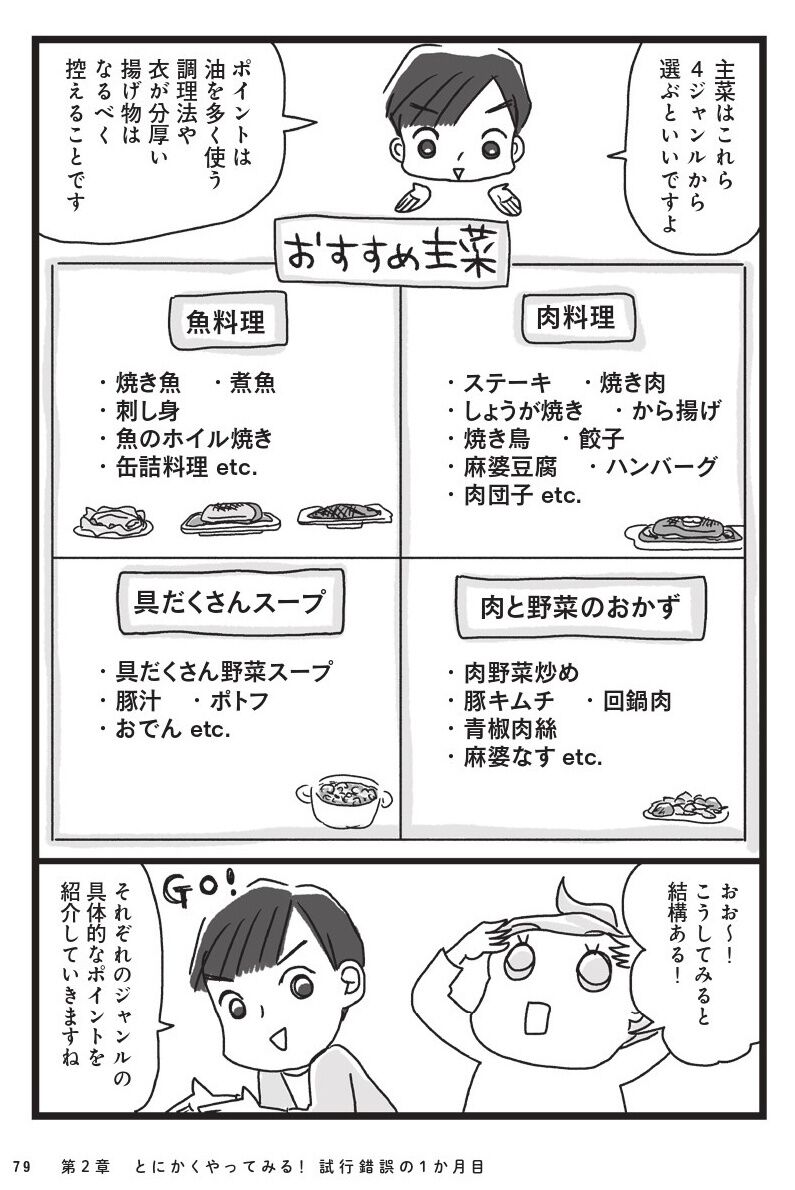 主菜はこれら
4ジャンルから
選ぶといいですよ
ポイントは
油を多く使う
調理法や
衣が分厚い
揚げ物は
なるべく
控えることです
おすすめ主菜
魚料理
・焼き魚 ・煮魚
・刺し身
・魚のホイル焼き
・缶詰料理 etc.
肉料理
・ステーキ ・焼き肉
・しょうが焼き ・から揚げ
・焼き鳥 ・餃子
・麻婆豆腐 ・ハンバーグ
・肉団子 etc.
具だくさんスープ
・具だくさん野菜スープ
・豚汁 ・ポトフ
・おでん etc.
肉と野菜のおかず
・肉野菜炒め
・豚キムチ ・回鍋肉
・青椒肉絲
・麻婆なす etc.
おお〜!
こうしてみると
結構ある!
GO!
それぞれのジャンルの
具体的なポイントを
紹介していきますね
79 第2章 とにかくやってみる! 試行錯誤の1か月目